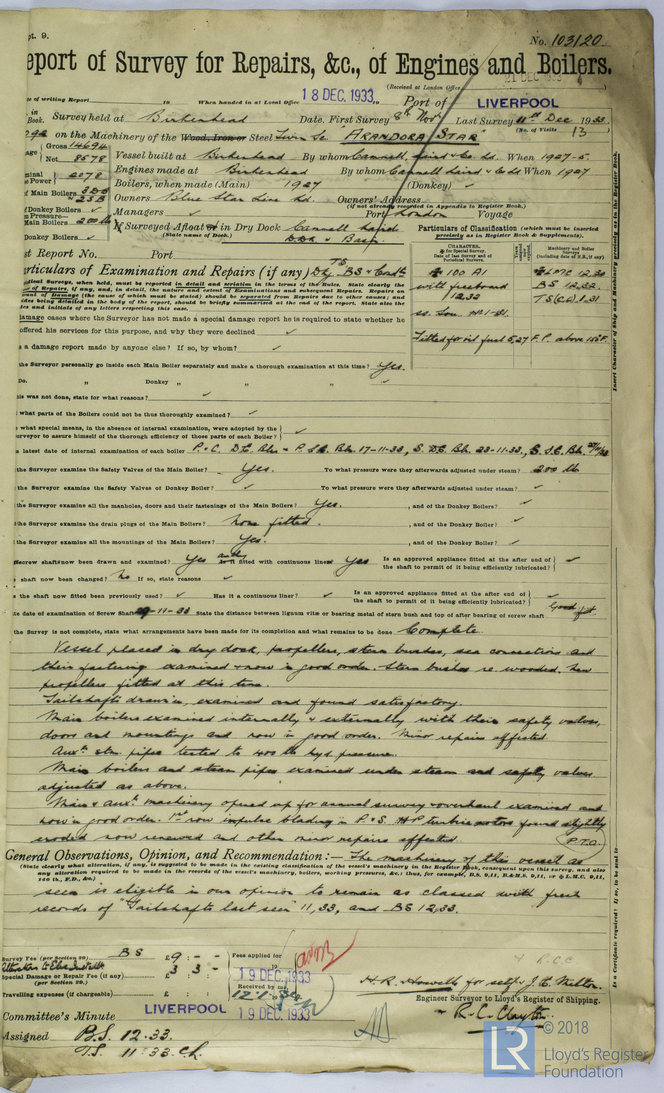 pt. 9.
No. 103120
eport of Survey for Repairs, &c., of Engines and Boilers.
(Received at London Office
21 DEC 1933
e of writing Report 19 When handed in at Local Office 18 DEC. 1933 Port of LIVERPOOL
in Book. Survey held at Birkenhead Date, First Survey 8th Nov Last Survey 11th Dec 1933
(No. of Visits 13
on the Machinery of the Wood, Iron or Steel Twin Sc "ARANDORA STAR"
Gross 14694
Net 8578
Vessel built at Birkenhead By whom Cammell Laird & Co Ld. When 1927-5
Engines made at Birkenhead By whom Cammell Laird & Co Ld When 1927
minal Power 2078
Boilers, when made (Main) 1927 (Donkey) ✓
Main Boilers 3DB 2SB
Owners Blue Star Line Ld. Owners' Address
(if not already recorded in Appendix to Register Book.)
f Donkey Boilers ✓
Managers ✓ Port London Voyage
Pressure—
Main Boilers 200 lb
Donkey Boilers ✓
If Surveyed Afloat or in Dry Dock Cammell Laird
(State name of Dock.) D.Dk & Basin
Particulars of Classification (which must be inserted
precisely as in Register Book & Supplements).
st Report No. Port
articulars of Examination and Repairs (if any) Dkg BS & Condn TS
CHARACTER.
for Special Survey.
Date of last Survey and of Periodical Surveys.
Machinery and Boiler Surveys
(including date of N.B., if any)
100 A1
with freeboard
12.32
ss. Lon. No.1-31.
LMC 12.30
BS 12.32
TS(CL) 1.31
Fitted for oil fuel 5,27 F.P. above 150°F.
damage cases where the Surveyor has not made a special damage report he is required to state whether he
offered his services for this purpose, and why they were declined ✓
s a damage report made by anyone else? If so, by whom? ✓
the Surveyor personally go inside each Main Boiler separately and make a thorough examination at this time? Yes.
Do. „ Donkey „ „ „ ✓
his was not done, state for what reasons? ✓
what parts of the Boilers could not be thus thoroughly examined? ✓
what special means, in the absence of internal examination, were adopted by the
urveyor to assure himself of the thorough efficiency of those parts of each Boiler? ✓
e latest date of internal examination of each boiler P. & C. D.E. Blrs & P. S.E. Blr. 17-11-33, S. D.E. Blr. 23-11-33, S. S.E. Blr.
the Surveyor examine the Safety Valves of the Main Boiler? Yes. To what pressure were they afterwards adjusted under steam? 200 lb
the Surveyor examine the Safety Valves of Donkey Boiler? ✓ To what pressure were they afterwards adjusted under steam? ✓
the Surveyor examine all the manholes, doors and their fastenings of the Main Boilers? Yes. , and of the Donkey Boilers? ✓
the Surveyor examine the drain plugs of the Main Boilers? None fitted. , and of the Donkey Boiler? ✓
the Surveyor examine all the mountings of the Main Boilers? Yes. , and of the Donkey Boiler? ✓
Screw shafts now been drawn and examined? Yes fitted with continuous liners Yes Is an approved appliance fitted at the after end of
the shaft to permit of it being efficiently lubricated? ✓
s shaft now been changed? No If so, state reasons ✓
s the shaft now fitted been previously used? ✓ Has it a continuous liner? ✓ Is an approved appliance fitted at the after end of
the shaft to permit of it being efficiently lubricated? ✓
te date of examination of Screw Shaft 9-11-33 State the distance between lignum vitæ or bearing metal of stern bush and top of after bearing of screw shaft Good fit
the Survey is not complete, state what arrangements have been made for its completion and what remains to be done Complete.
Vessel placed in dry dock, propellers, stern bushes, sea connections and
their fastening examined & now in good order. Stern bushes re-wooded. New
propellers fitted at this time.
Tailshafts drawn in, examined and found satisfactory.
Main boilers examined internally & externally with their safety valves,
doors and mountings and now in good order. Minor repairs effected.
Auxy stm. pipes tested to 400 lb hyd. pressure.
Main boilers and steam pipes examined under steam and safety valves
adjusted as above.
Main & Auxy machinery opened up for annual survey & overhaul examined and
now in good order. 1st row impulse blading in P. & S. HP turbine rotors found slightly
eroded now renewed and other minor repairs effected. (P.T.O.)
General Observations, Opinion, and Recommendation:— The machinery of this vessel as
(State clearly what alteration, if any, is suggested to be made in the existing classification of the vessel's machinery in the Register Book, consequent upon this survey, and also
any alteration required to be made in the records of the vessel's machinery, boilers, working pressures, &c.; thus, for example, B.S. 9,11, B.&M.S. 9,11, or L.M.C. 9,11,
140 lb., F.D., &c.)
seen is eligible in our opinion to remain as classed with fresh
records of "Tailshafts last seen" 11,33, and BS 12,33.
Survey Fee (per Section 29) BS £ 9 : - -
£ 3 3 -
Special Damage or Repair Fee (if any)
(per Section 29.)
Travelling expenses (if chargeable) £ : :
Fees applied for
19 DEC. 1933
Received by me
H.R. Howells for self & J.E. Milton.
R.C. Clayton.
Engineer Surveyor to Lloyd's Register of Shipping.
Committee's Minute LIVERPOOL 19 DEC. 1933
Assigned B.S. 12.33
T.S. 11.33. CL.
Insert Character of Ship and Machinery precisely as in the Register Book.
Is a Certificate required? If so, to be sent to
LR
© 2018
Lloyd's Register
Foundation